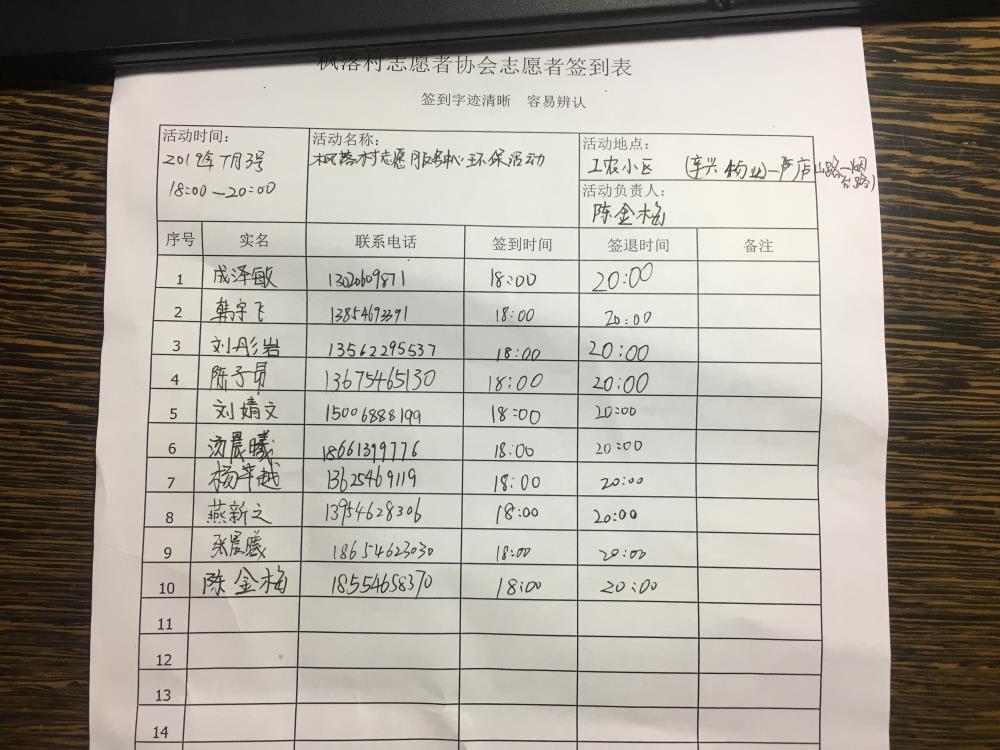 枫落村志愿者协会志愿者签到表
签到字迹清晰 容易辨认
活动时间: 活动名称: 活动地点:
2019年7月3号 枫落村志愿服务中心环保活动 工农小区
18:00—20:00 活动负责人:
陈金梅
序号 实名 联系电话 签到时间 签退时间 备注
1 成泽敏 1302609871 18:00 20:00
2 韩宇飞 13854693391 18:00 20:00
3 刘彤岩 13562295537 18:00 20:00
4 陈子昂 13675465130 18:00 20:00
5 刘婧文 15006888199 18:00 20:00
6 汤晨曦 18661399776 18:00 20:00
7 13625469119 18:00 20:00
8 燕新之 13954628306 18:00 20:00
9 张晨曦 18654623030 18:00 20:00
10 陈金梅 18554658370 18:00 20:00
11
12
13
14